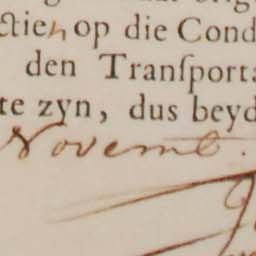 ctien op die Cond
den Tranſport
te zyn, dus beyd
Novemb.